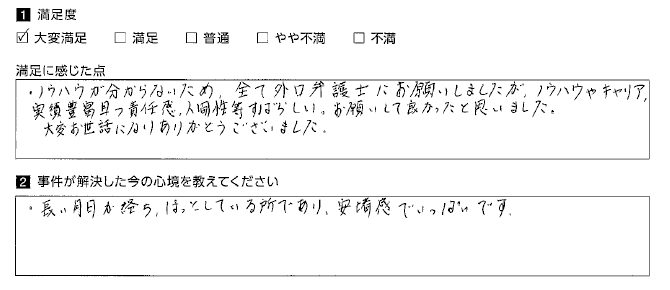 1 満足度
☑ 大変満足 □ 満足 □ 普通 □ やや不満 □ 不満
満足に感じた点
・ノウハウが分からないため、全て外口弁護士にお願いしましたが、ノウハウやキャリア、
実績豊富且つ責任感、人間性等すばらしい。お願いして良かったと思いました。
大変お世話になりありがとうございました。
2 事件が解決した今の心境を教えてください
・長い月日が経ち、ほっとしている所であり、安堵感でいっぱいです。